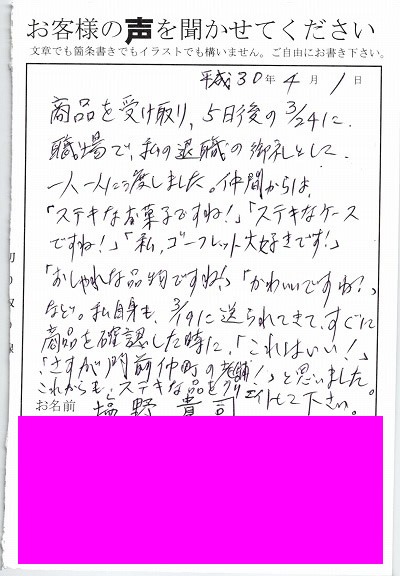 お客様の声を聞かせてください
文章でも箇条書きでもイラストでも構いません。ご自由にお書き下さい。
平成30年4月1日
商品を受け取り、5日後の3/24に、
職場で、私の退職の御礼として、
一人一人に渡しました。仲間からは、
「ステキなお菓子ですね!」「ステキなケース
ですね!」「私、ゴーフレット大好きです!」
「おしゃれな品物ですね!」「かわいいですね?」
など。私自身も、3/19に送られてきて、すぐに
商品を確認した時に、「これはいい!」
「さすが門前仲町の老舗!」と思いました。
これからも、ステキな品をクリエイトして下さい。
お名前 塩野 貴司